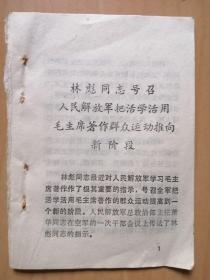 林彪同志号召
人民解放军把活学活用
毛主席著作群众运动推向
新阶段
林彪同志最近对人民解放军学习毛主
席著作作了极其重要的指示，号召全军把
活学活用毛主席著作的群众运动提高到一
个新的阶段。人民解放军总政治部主任萧
华同志在空军的一次干部会议上传达了林
彪同志的指示。
1